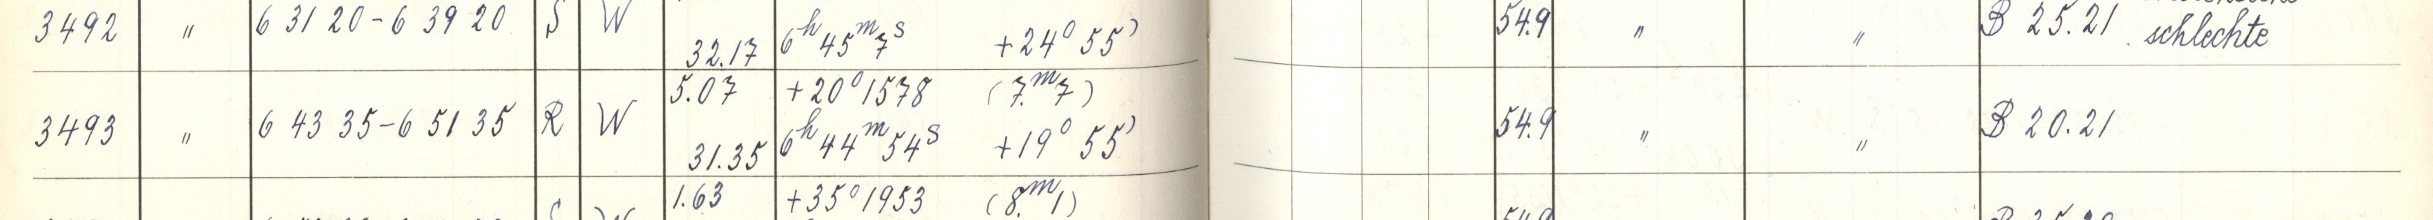 3492 " 6 31 20-6 39 20 S W 32.17 6ʰ 45ᵐ 7ˢ +24° 55' 54.9 " " B 25.21 schlechte
5.07 +20° 1578 (7.ᵐ7)
3493 " 6 43 35-6 51 35 R W 31.35 6ʰ 44ᵐ 54ˢ +19° 55' 54.9 " " B 20.21
1.63 +35° 1953 (8.ᵐ1)